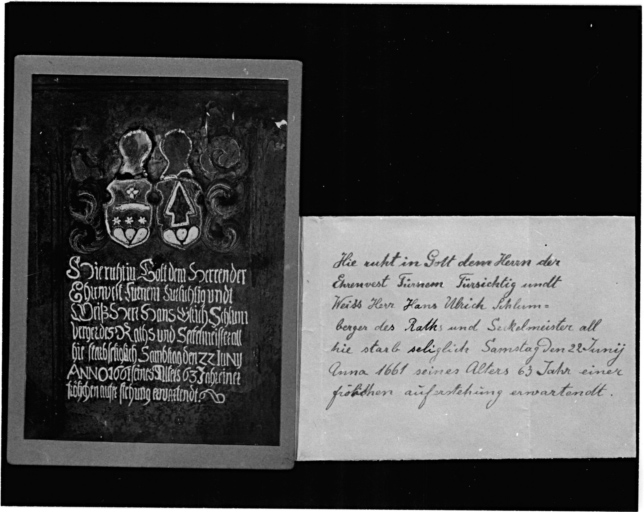 Hie ruht in Gott dem Herren der
Ehrenvest Furnem Fursichtig undt
Weiß Herr Hans Ulrich Schlum
berger des Raths und Seckelmeister all
hir starb seliglich Sambstag den 22 Iuny
ANNO 1661 seines Alters 63 Jahr einer
frölichen auffer stehung erwartendt
Hie ruht in Gott dem Herrn der
Ehrenvest Fürnem Fürsichtig undt
Weiss Herr Hans Ulrich Schlum=
berger des Raths und Seckelmeister all
hie starb seliglich Samstag Den 22 Junij
Anna 1661 seines Alters 63 Jahr einer
frölichen auferstehung erwartendt.